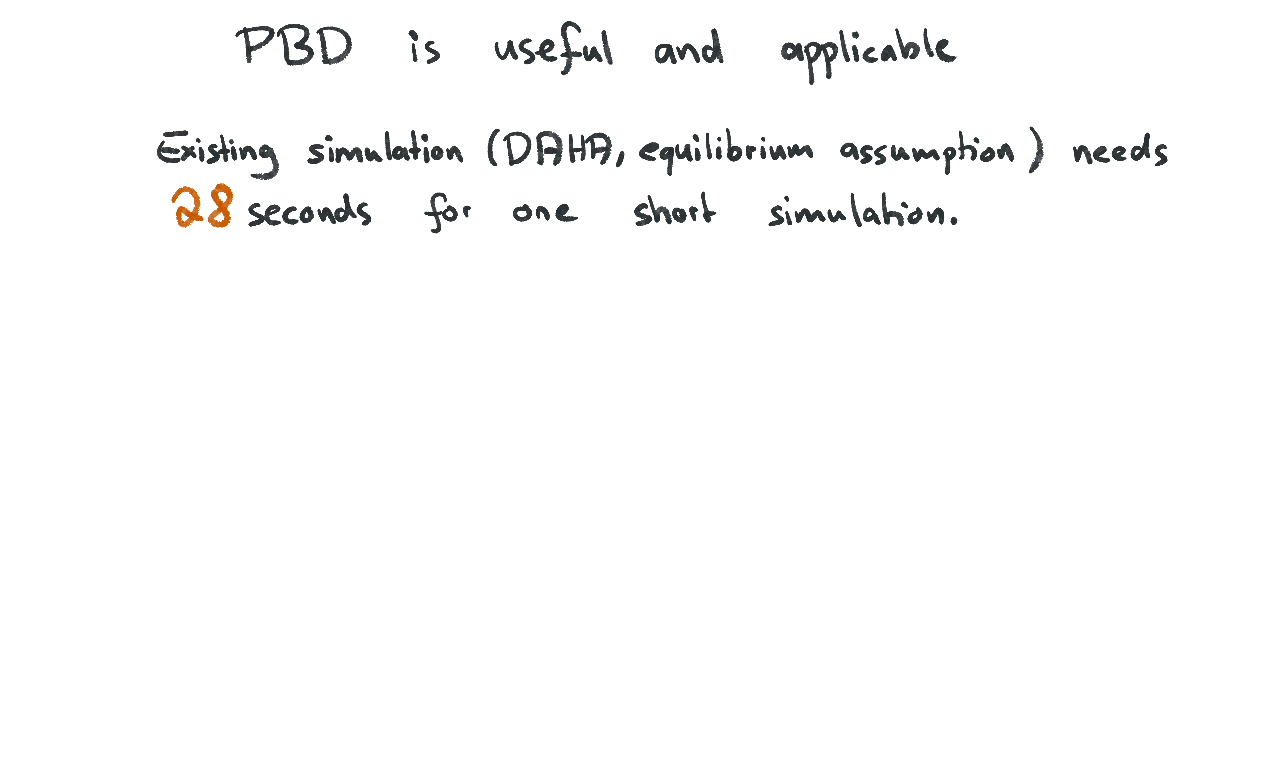 PBD is useful and applicable
Existing simulation (DAHA, equilibrium assumption) needs
28 seconds for one short simulation.